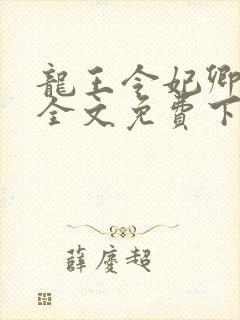 龍王令妃卿
全文免費下
薛慶超